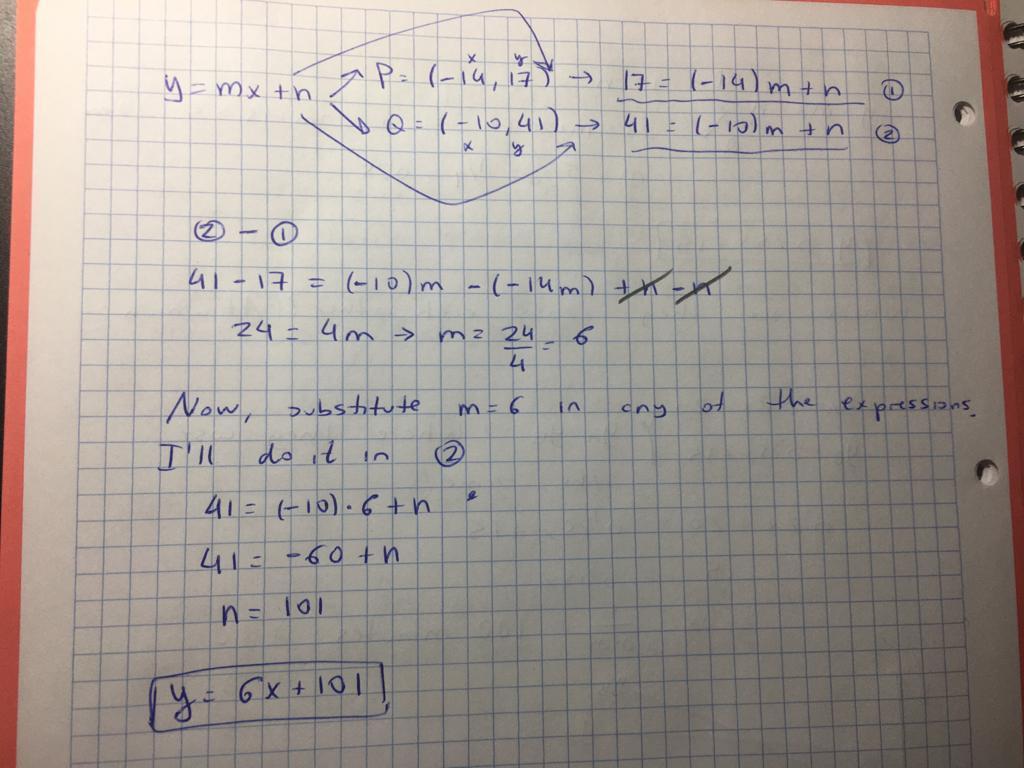 x y
y = mx + n → P = (-14, 17) → 17 = (-14)m + n ①
→ Q = (-10, 41) → 41 = (-10)m + n ②
x y
② - ①
41 - 17 = (-10)m - (-14m) + n - n
24 = 4m → m = 24/4 = 6
Now, substitute m = 6 in any of the expressions.
I'll do it in ②
41 = (-10) · 6 + n
41 = -60 + n
n = 101
y = 6x + 101